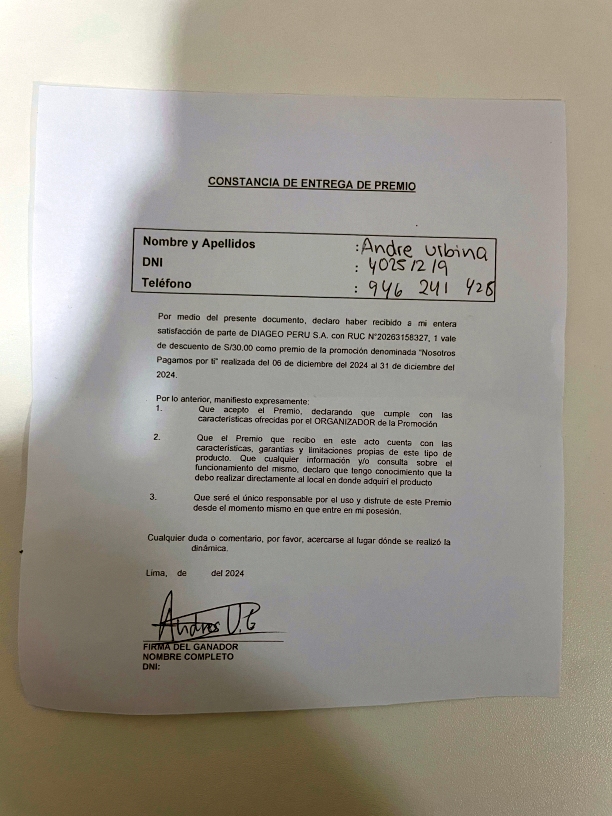 CONSTANCIA DE ENTREGA DE PREMIO
Nombre y Apellidos : Andre Urbina
DNI : 40251219
Teléfono : 946 241 428
Por medio del presente documento, declaro haber recibido a mi entera
satisfacción de parte de DIAGEO PERU S.A. con RUC N°20263158327, 1 vale
de descuento de S/30.00 como premio de la promoción denominada "Nosotros
Pagamos por ti" realizada del 06 de diciembre del 2024 al 31 de diciembre del
2024.
Por lo anterior, manifiesto expresamente:
1. Que acepto el Premio, declarando que cumple con las
características ofrecidas por el ORGANIZADOR de la Promoción
2. Que el Premio que recibo en este acto cuenta con las
características, garantías y limitaciones propias de este tipo de
producto. Que cualquier información y/o consulta sobre el
funcionamiento del mismo, declaro que tengo conocimiento que la
debo realizar directamente al local en donde adquirí el producto
3. Que seré el único responsable por el uso y disfrute de este Premio
desde el momento mismo en que entre en mi posesión.
Cualquier duda o comentario, por favor, acercarse al lugar dónde se realizó la
dinámica.
Lima, de del 2024
Andres U.C
FIRMA DEL GANADOR
NOMBRE COMPLETO
DNI: